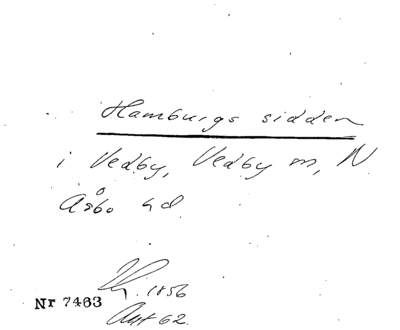 Hamburgs sidden
i Vedby, Vedby m, N
Åsbo hd
1856
Nr 7463
Ant 62.